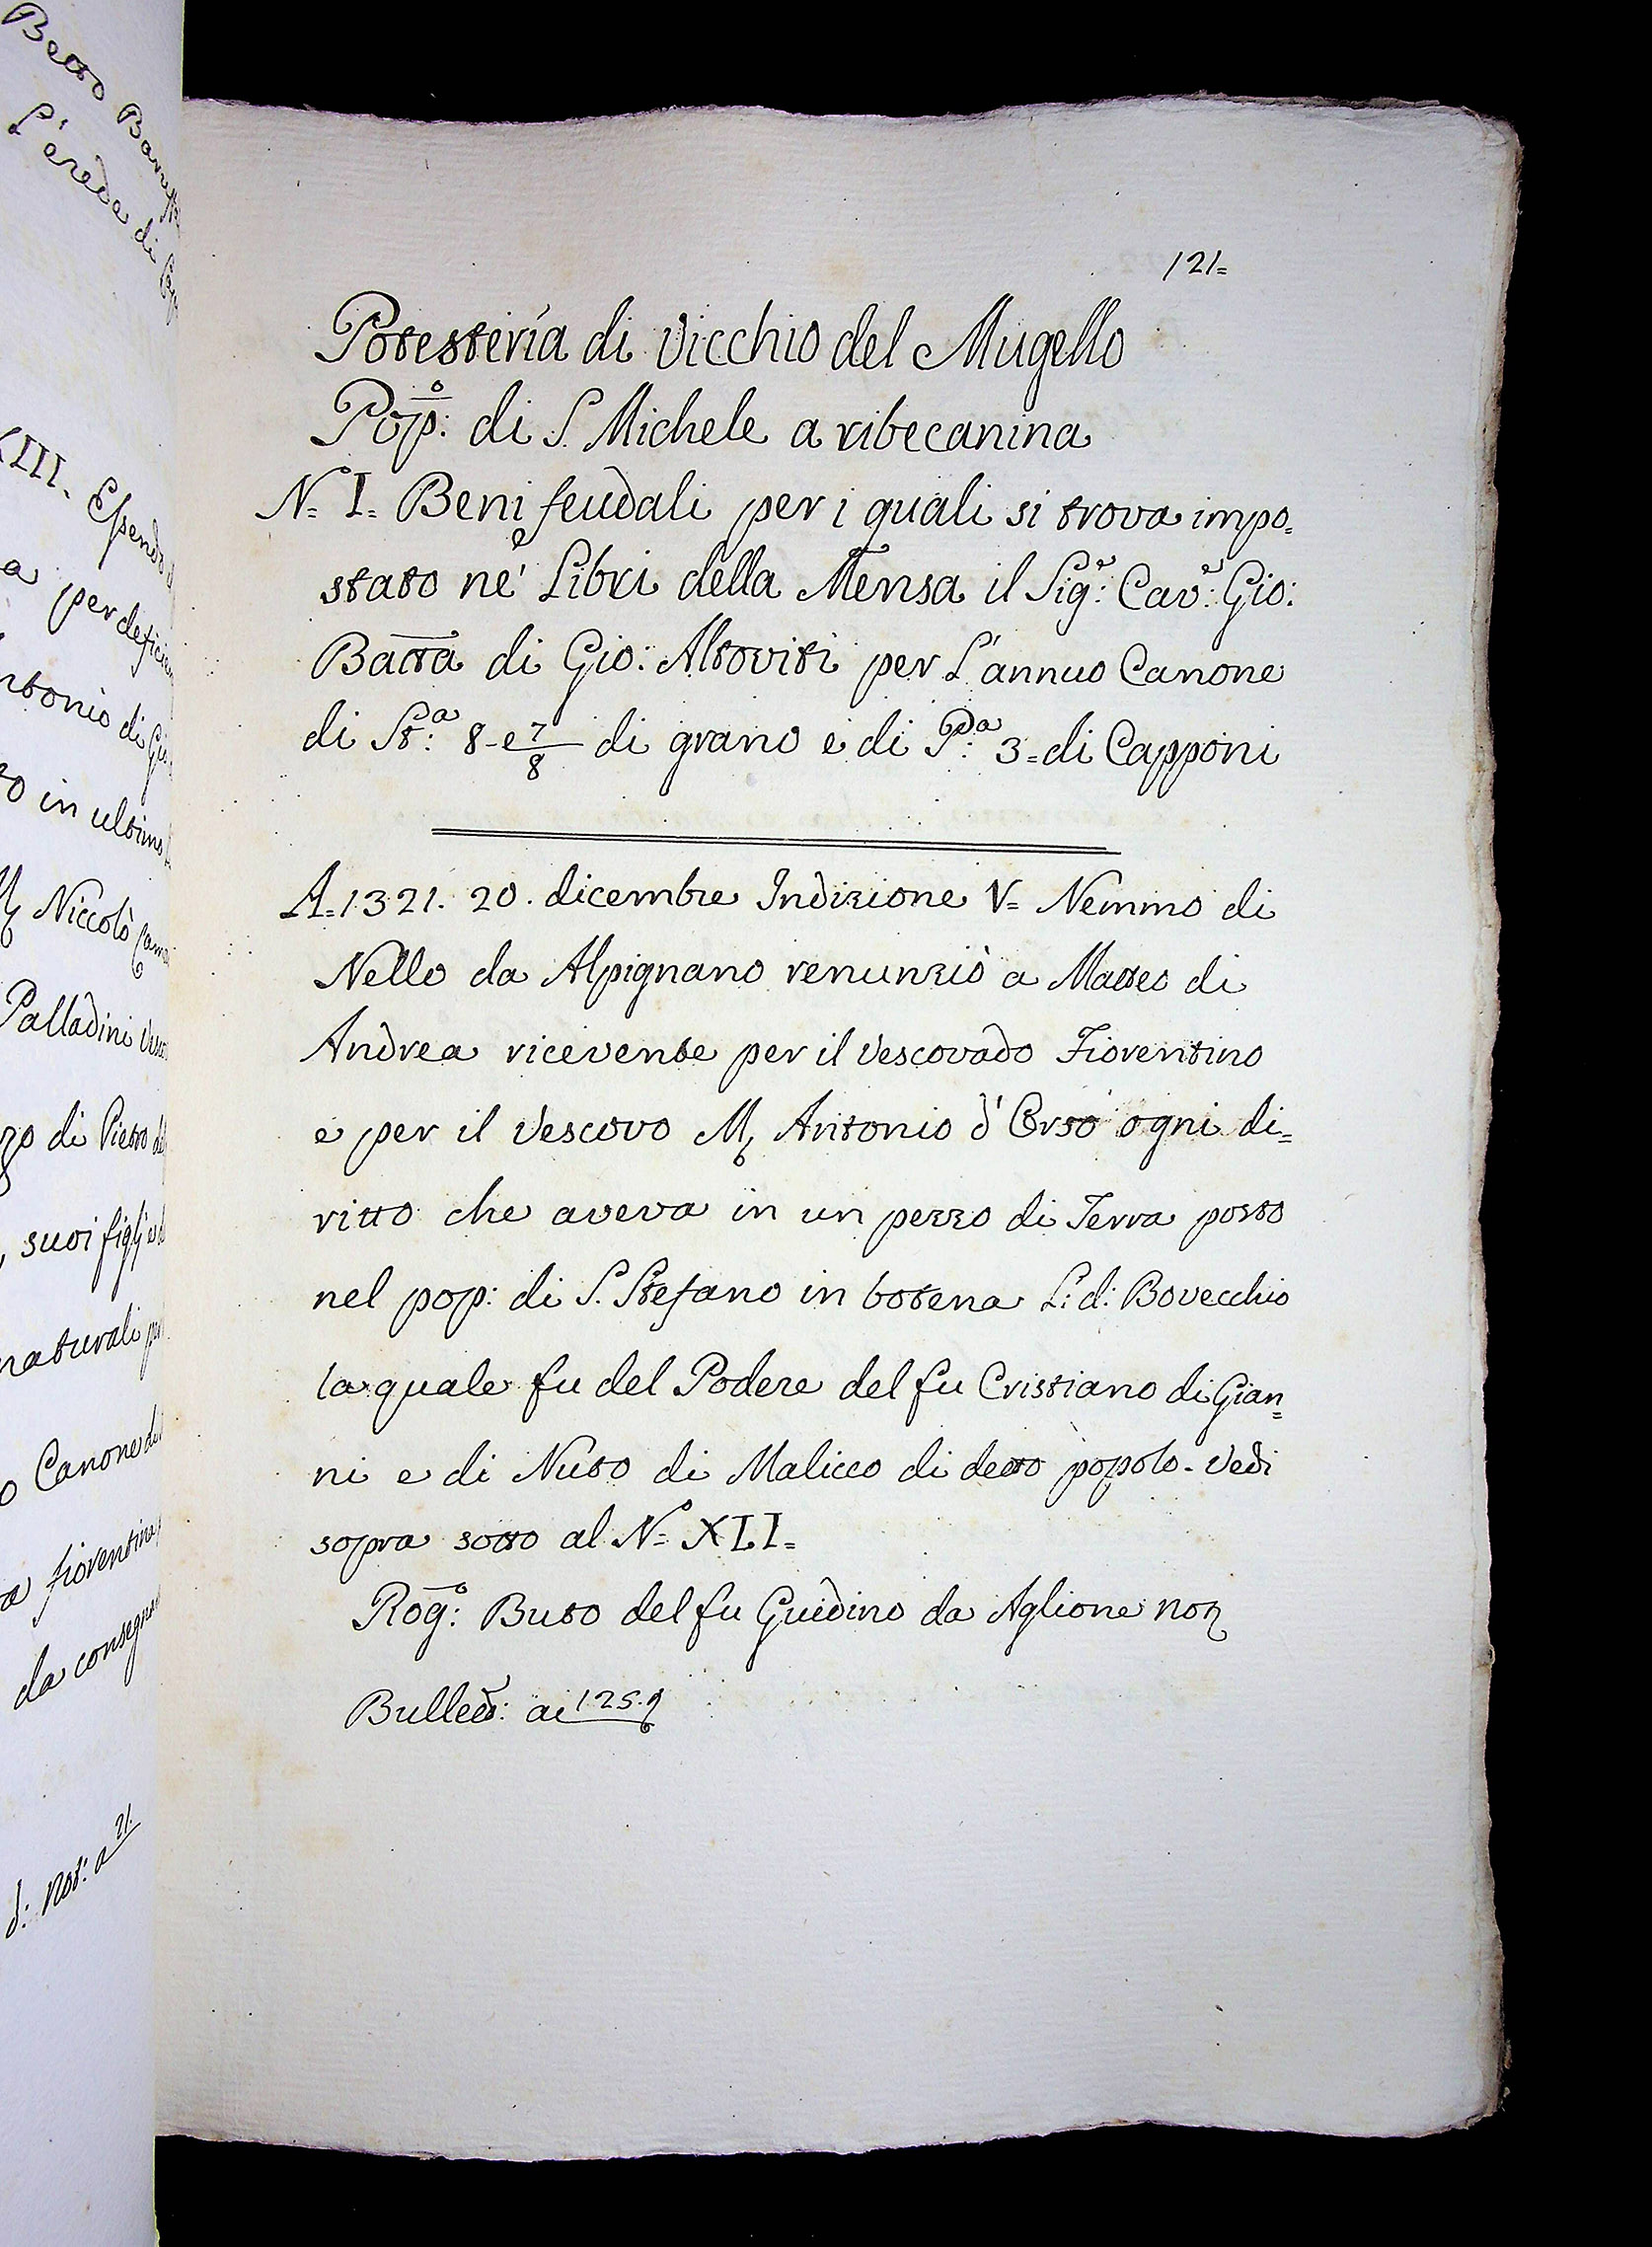 Betto
L'ereda di
XIII. Essendo
a per
Antonio di
in ultimo
Niccolò
Palladini
di Pietro
suoi figli
naturali
Canone
fiorentina
da
d: Not: a 21.
121=
Potesteria di Vicchio del Mugello
Pop:º di S. Michele a ribecanina
N.= I= Beni feudali per i quali si trova impo=
stato ne' Libri della Mensa il Sig:e Cav:e Gio:
Batta di Gio: Altoviti per L'annuo Canone
di St:a 8-e 7/8 di grano e di P:a 3= di Capponi
A=1321. 20. dicembre Indizione V= Nemmo di
Nello da Alpignano renunziò a Matteo di
Andrea ricevente per il Vescovado Fiorentino
e per il Vescovo M. Antonio d'Orso ogni di=
ritto che aveva in un pezzo di Terra posto
nel pop: di S. Stefano in botena L: d: Bovecchio
la quale fu del Podere del fu Cristiano di Gian=
ni e di Nuto di Malicco di detto popolo. Vedi
sopra sotto al Nº= XLI=
Rog:º Buto del fu Guidino da Aglione not
Bullett: a 125.